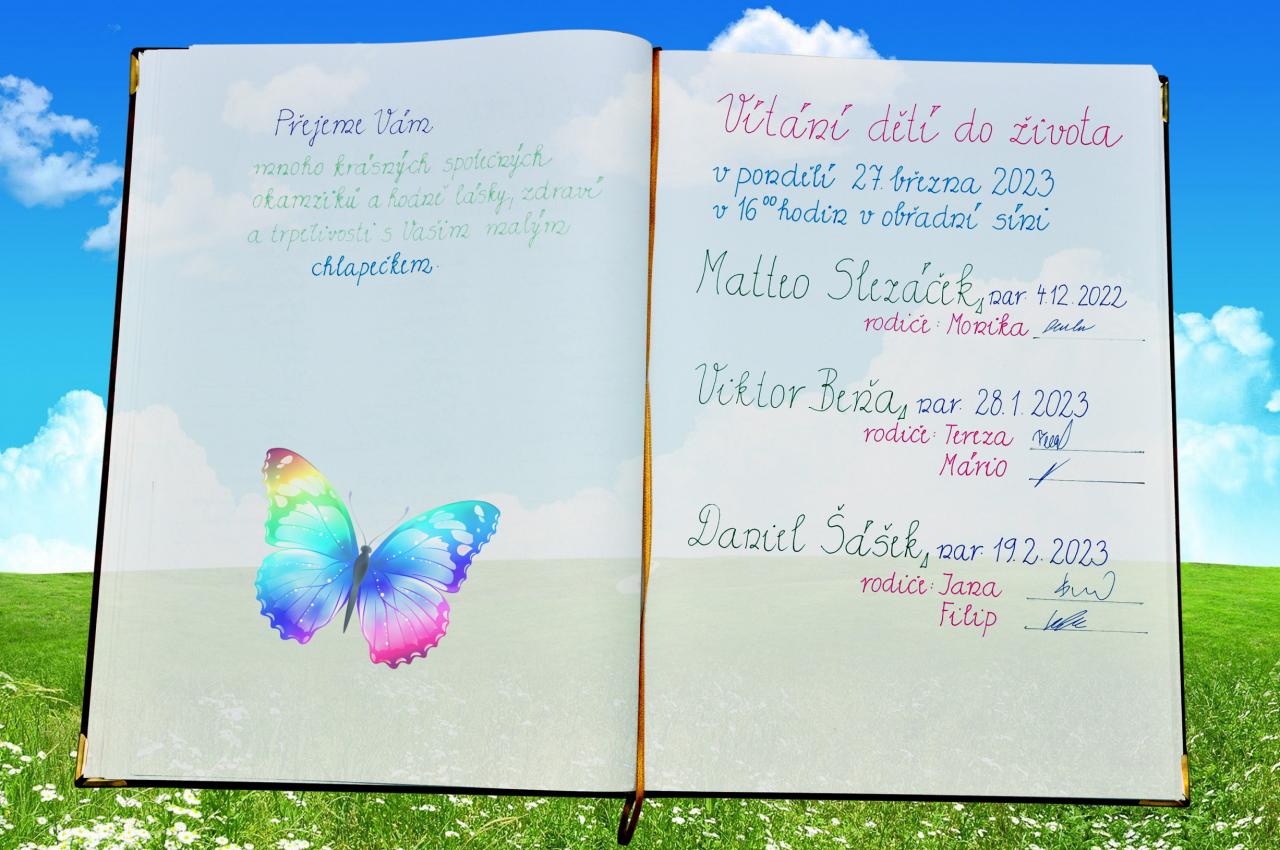 Přejeme Vám
mnoho krásných společných
okamžiků a hodně lásky, zdraví
a trpělivosti s Vaším malým
chlapečkem.
Vítání dětí do života
v pondělí 27. března 2023
v 16⁰⁰ hodin v obřadní síni
Matteo Slezáček, nar. 4.12.2022
rodiče: Monika
Viktor Beňa, nar. 28.1.2023
rodiče: Tereza
Mário
Daniel Šášek, nar. 19.2.2023
rodiče: Jana
Filip